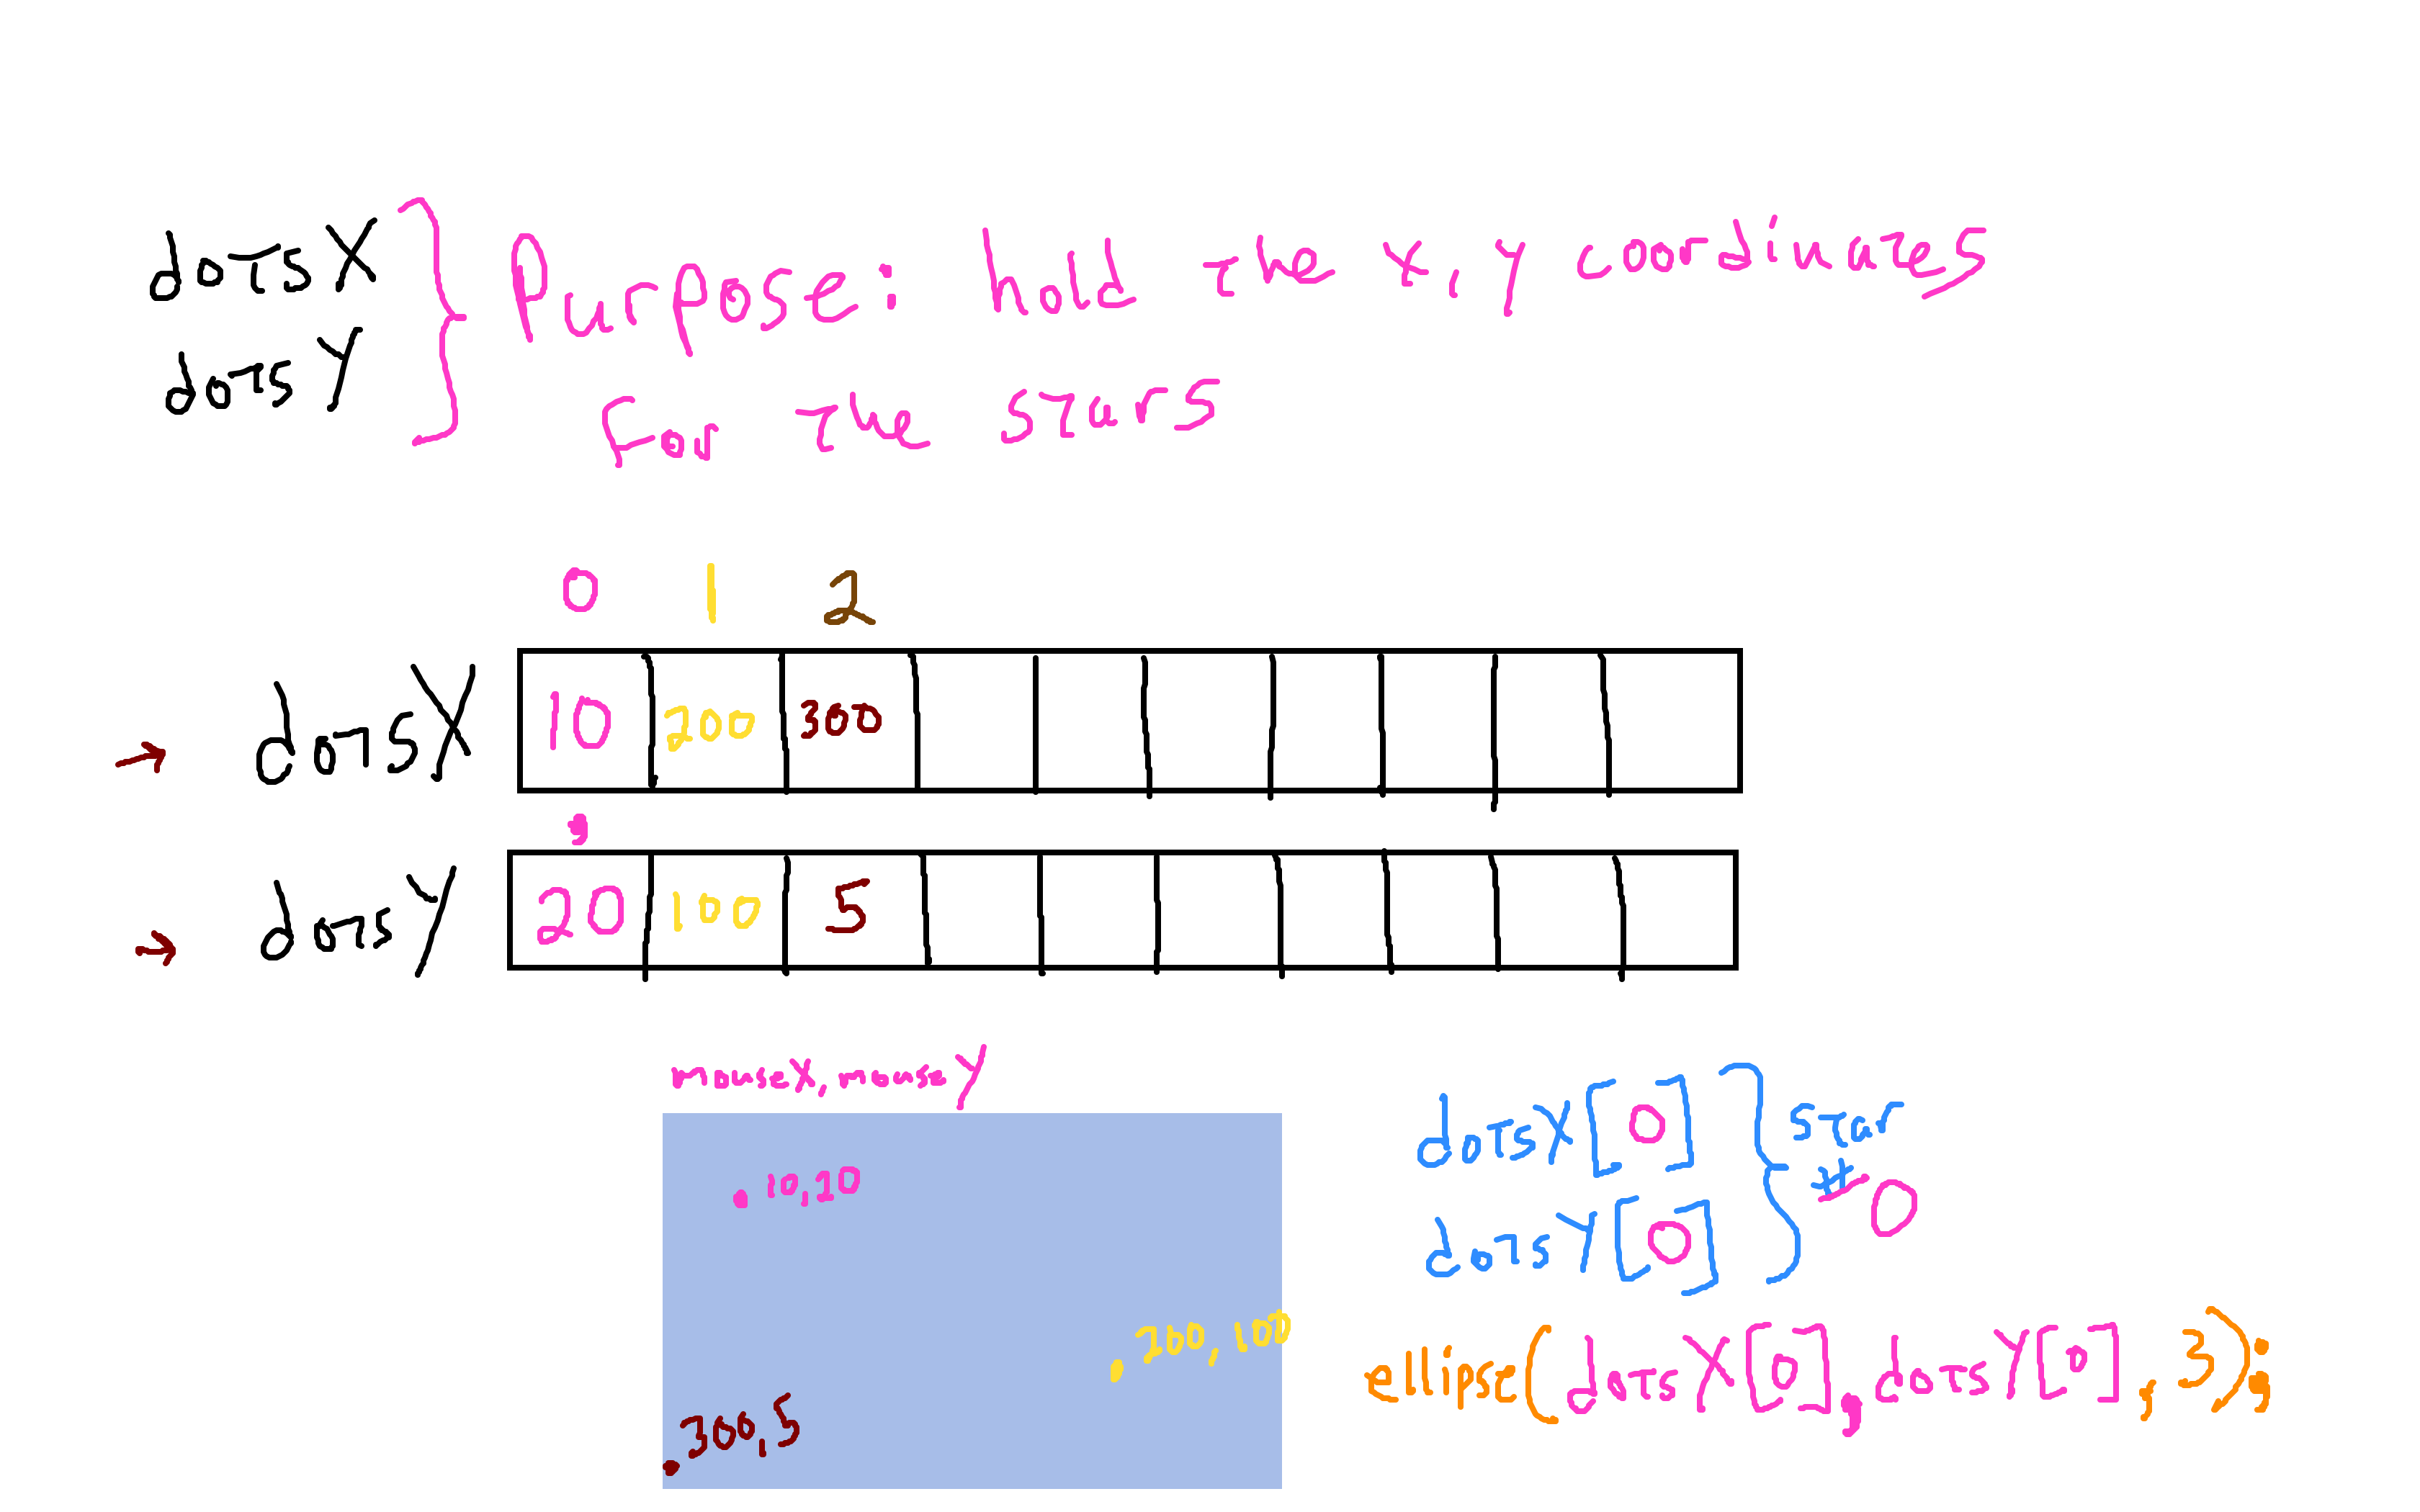 dotsX
dotsY
Purpose: hold the x, y cordinates
for the stars
0 1 2
dotsX 10 200 300
,
dotsY 20 100 5
mouseX, mouseY
10,20
200,100
300,5
dotsX[0]
dotsY[0]
star
# 0
ellipse(dotsX[0], dotsY[0], 3);